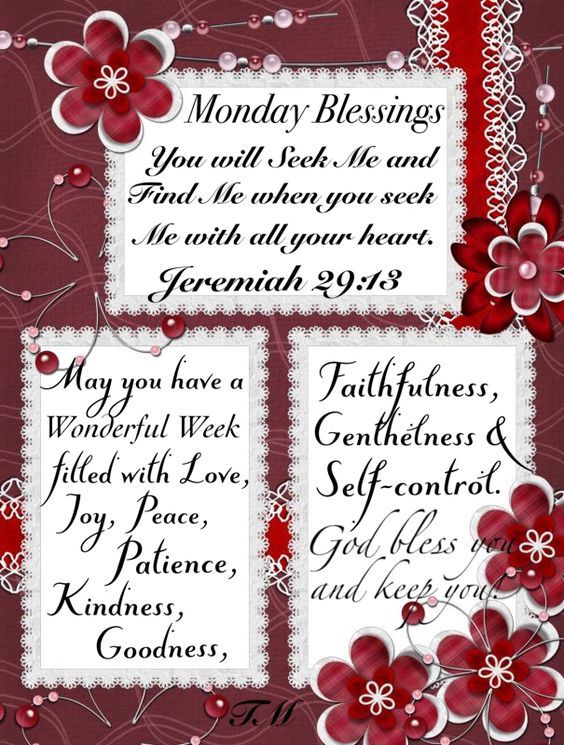 Monday Blessings
You will Seek Me and
Find Me when you seek
Me with all your heart.
Jeremiah 29:13
May you have a
Wonderful Week
filled with Love,
Joy, Peace,
Patience,
Kindness,
Goodness,
Faithfulness,
Genthelness &
Self-control.
God bless you
and keep you!
TM